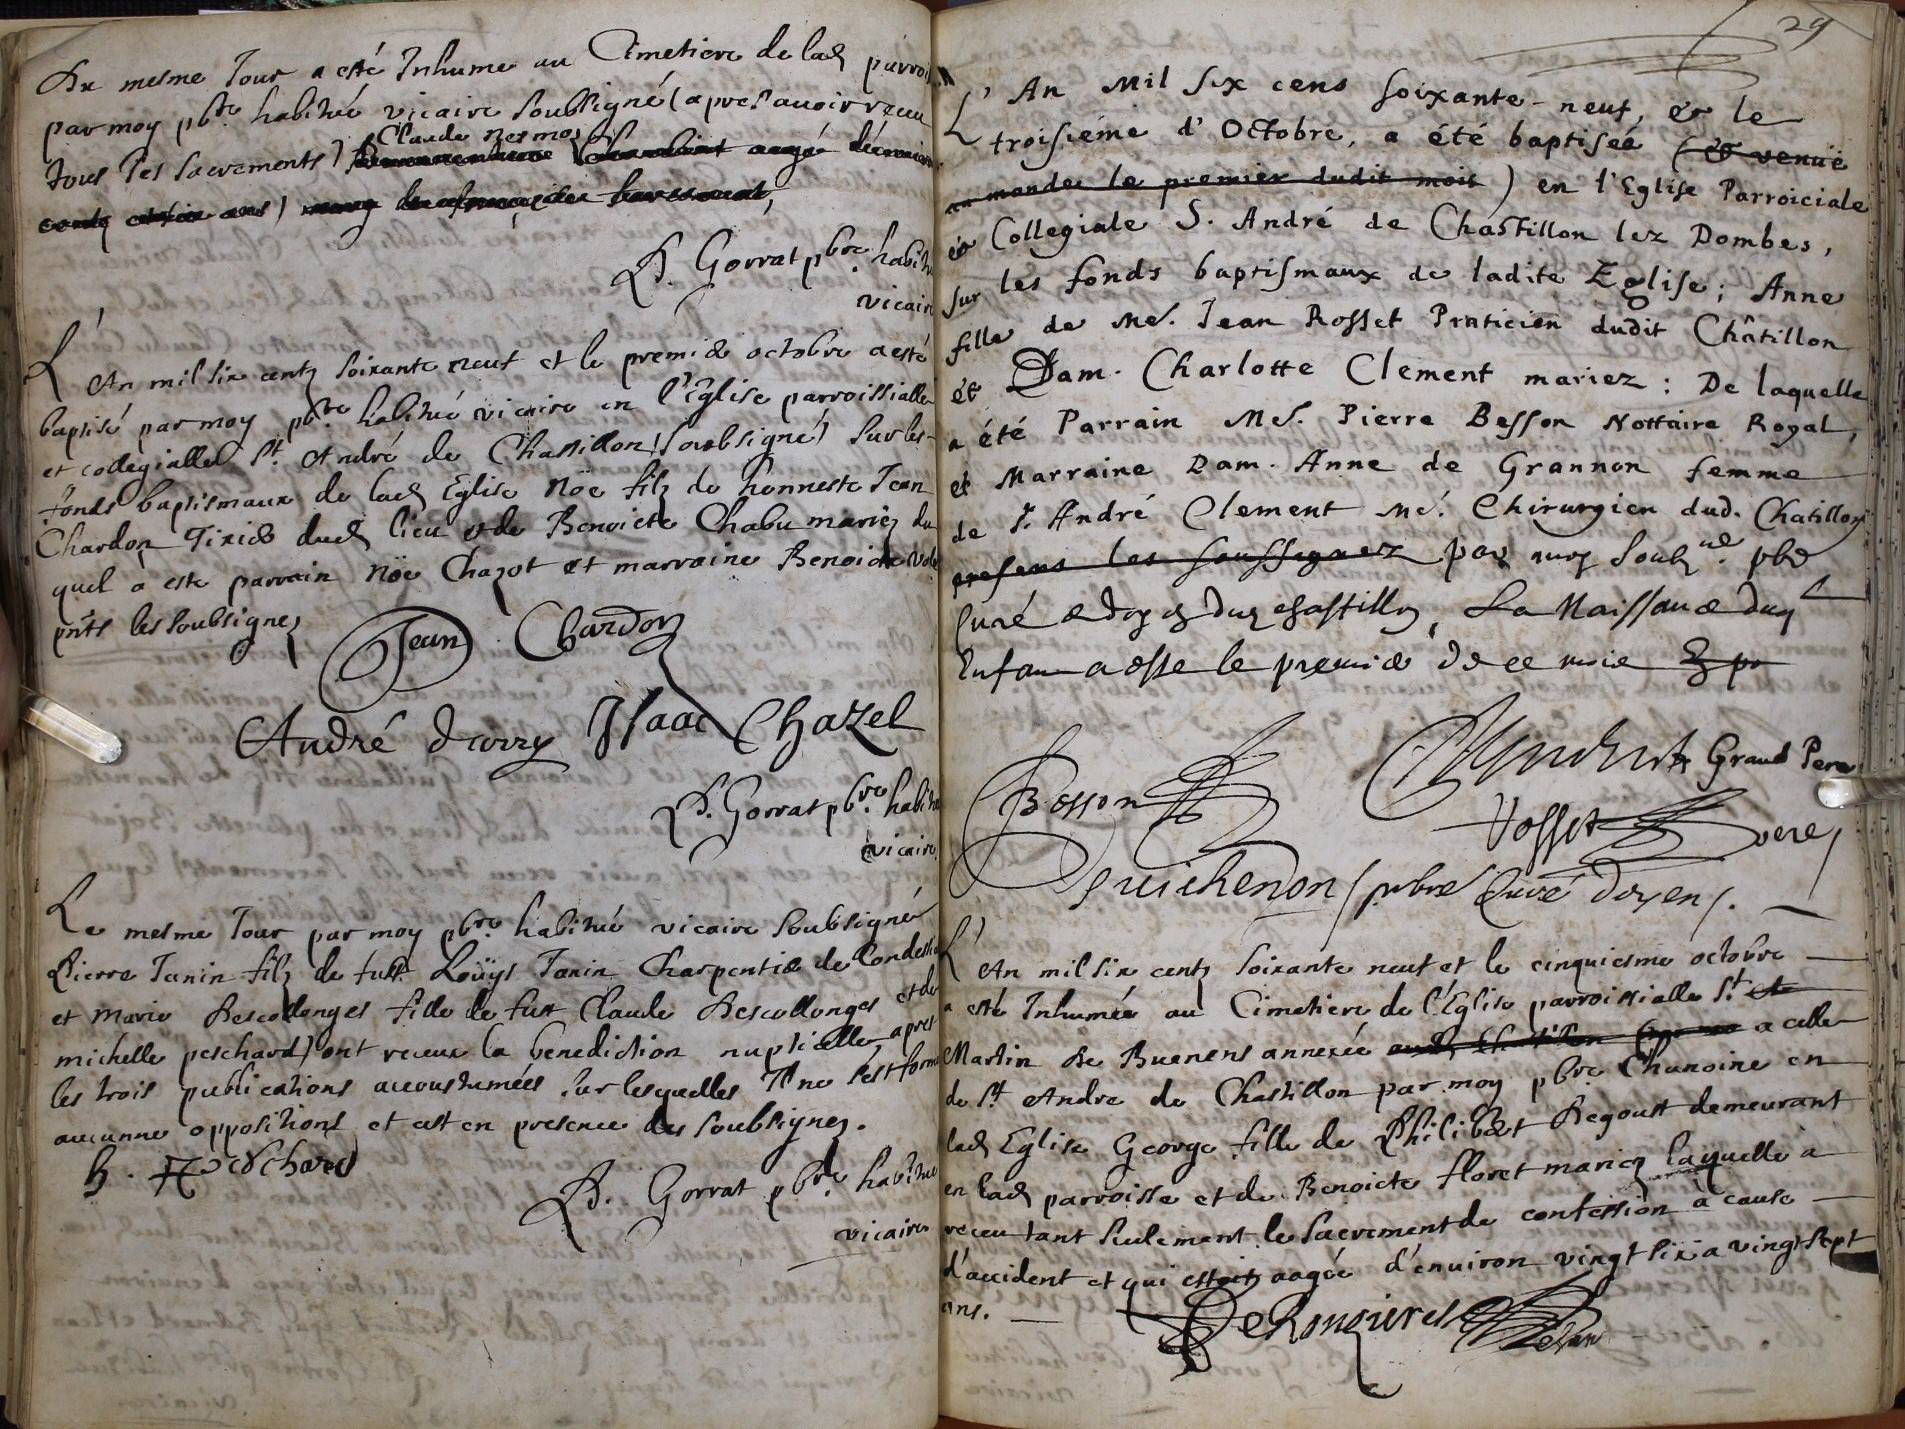 Du mesme Jour a esté Inhume au Cimetiere de lad parroi
par moy pbre habitué vicaire soubsigné (apres avoir receu
tous les sacrements) Claude
aagé d'environ
ans)
P. Gorrat pbre habitu
vicair
L'An mil six centz soixante neuf et le premier octobre a esté
baptisé par moy pbre habitué vicaire en l'Eglise parroissialle
et collegialle St. André de Chastillon (soubsigné) sur les
fonds baptismaux de lad Eglise Nöe filz de honneste Jean
Chardon Tixier dud lieu et de Benoicte Chabu mariez du
quel a este parrain Nöe Chazot et marraine Benoicte
pnts les soubsignez
Jean Chardon
André Isaac Chazel
P. Gorrat pbre habitu
vicaire
Le mesme Jour par moy pbre habitué vicaire soubsigné
Pierre Janin filz de fust Loüys Janin Charpentier de
et Marie Descollonges fille de fust Claude Descollonges et de
michelle peschard) ont receu la benediction nuptialle apres
les trois publications accoustumées sur lesquelles Il ne s'est form
aucunne oppositions et est en presence des soubsignez.
P. Gorrat pbre habitue
vicaire
29
L'An Mil six cens soixante-neuf, & le
troisiéme d'Octobre, a été baptiseé (& venuë
au monde le premier dudit mois) en l'Eglise Parroiciale
& Collegiale S. André de Chastillon lez Dombes,
sur les fonds baptismaux de ladite Eglise; Anne
fille de Me. Jean Rosset Praticien dudit Châtillon
et Dam. Charlotte Clement mariez: De laquelle
a été Parrain Me. Pierre Besson Nottaire Royal,
et Marraine Dam. Anne de Grannon femme
de Sr. André Clement Me. Chirurgien dud. Chatillon
presens les soussignez par moy soubne pbr
Curé & doyen du chastillon, La Naissance dud
Enfan a esté le premier de ce mois
Besson Grand Pere
Rosset pere
Guichenon / pbre Curé doyen /.
L'An mil six centz soixante neuf et le cinquiesme octobre
a esté Inhumée au Cimetiere de l'Eglise parroissialle St
Martin De Buenens annexée a celle
de St Andre de Chastillon par moy pbre Chanoine en
lad Eglise George fille de Philibert Degoust demeurant
en lad parroisse et de Benoicte floret mariez laquelle a
receu tant seulement le sacrement de confession à cause
d'accident et qui estoit aagée d'environ vingt six a vingt sept
ans.
DeRongieres